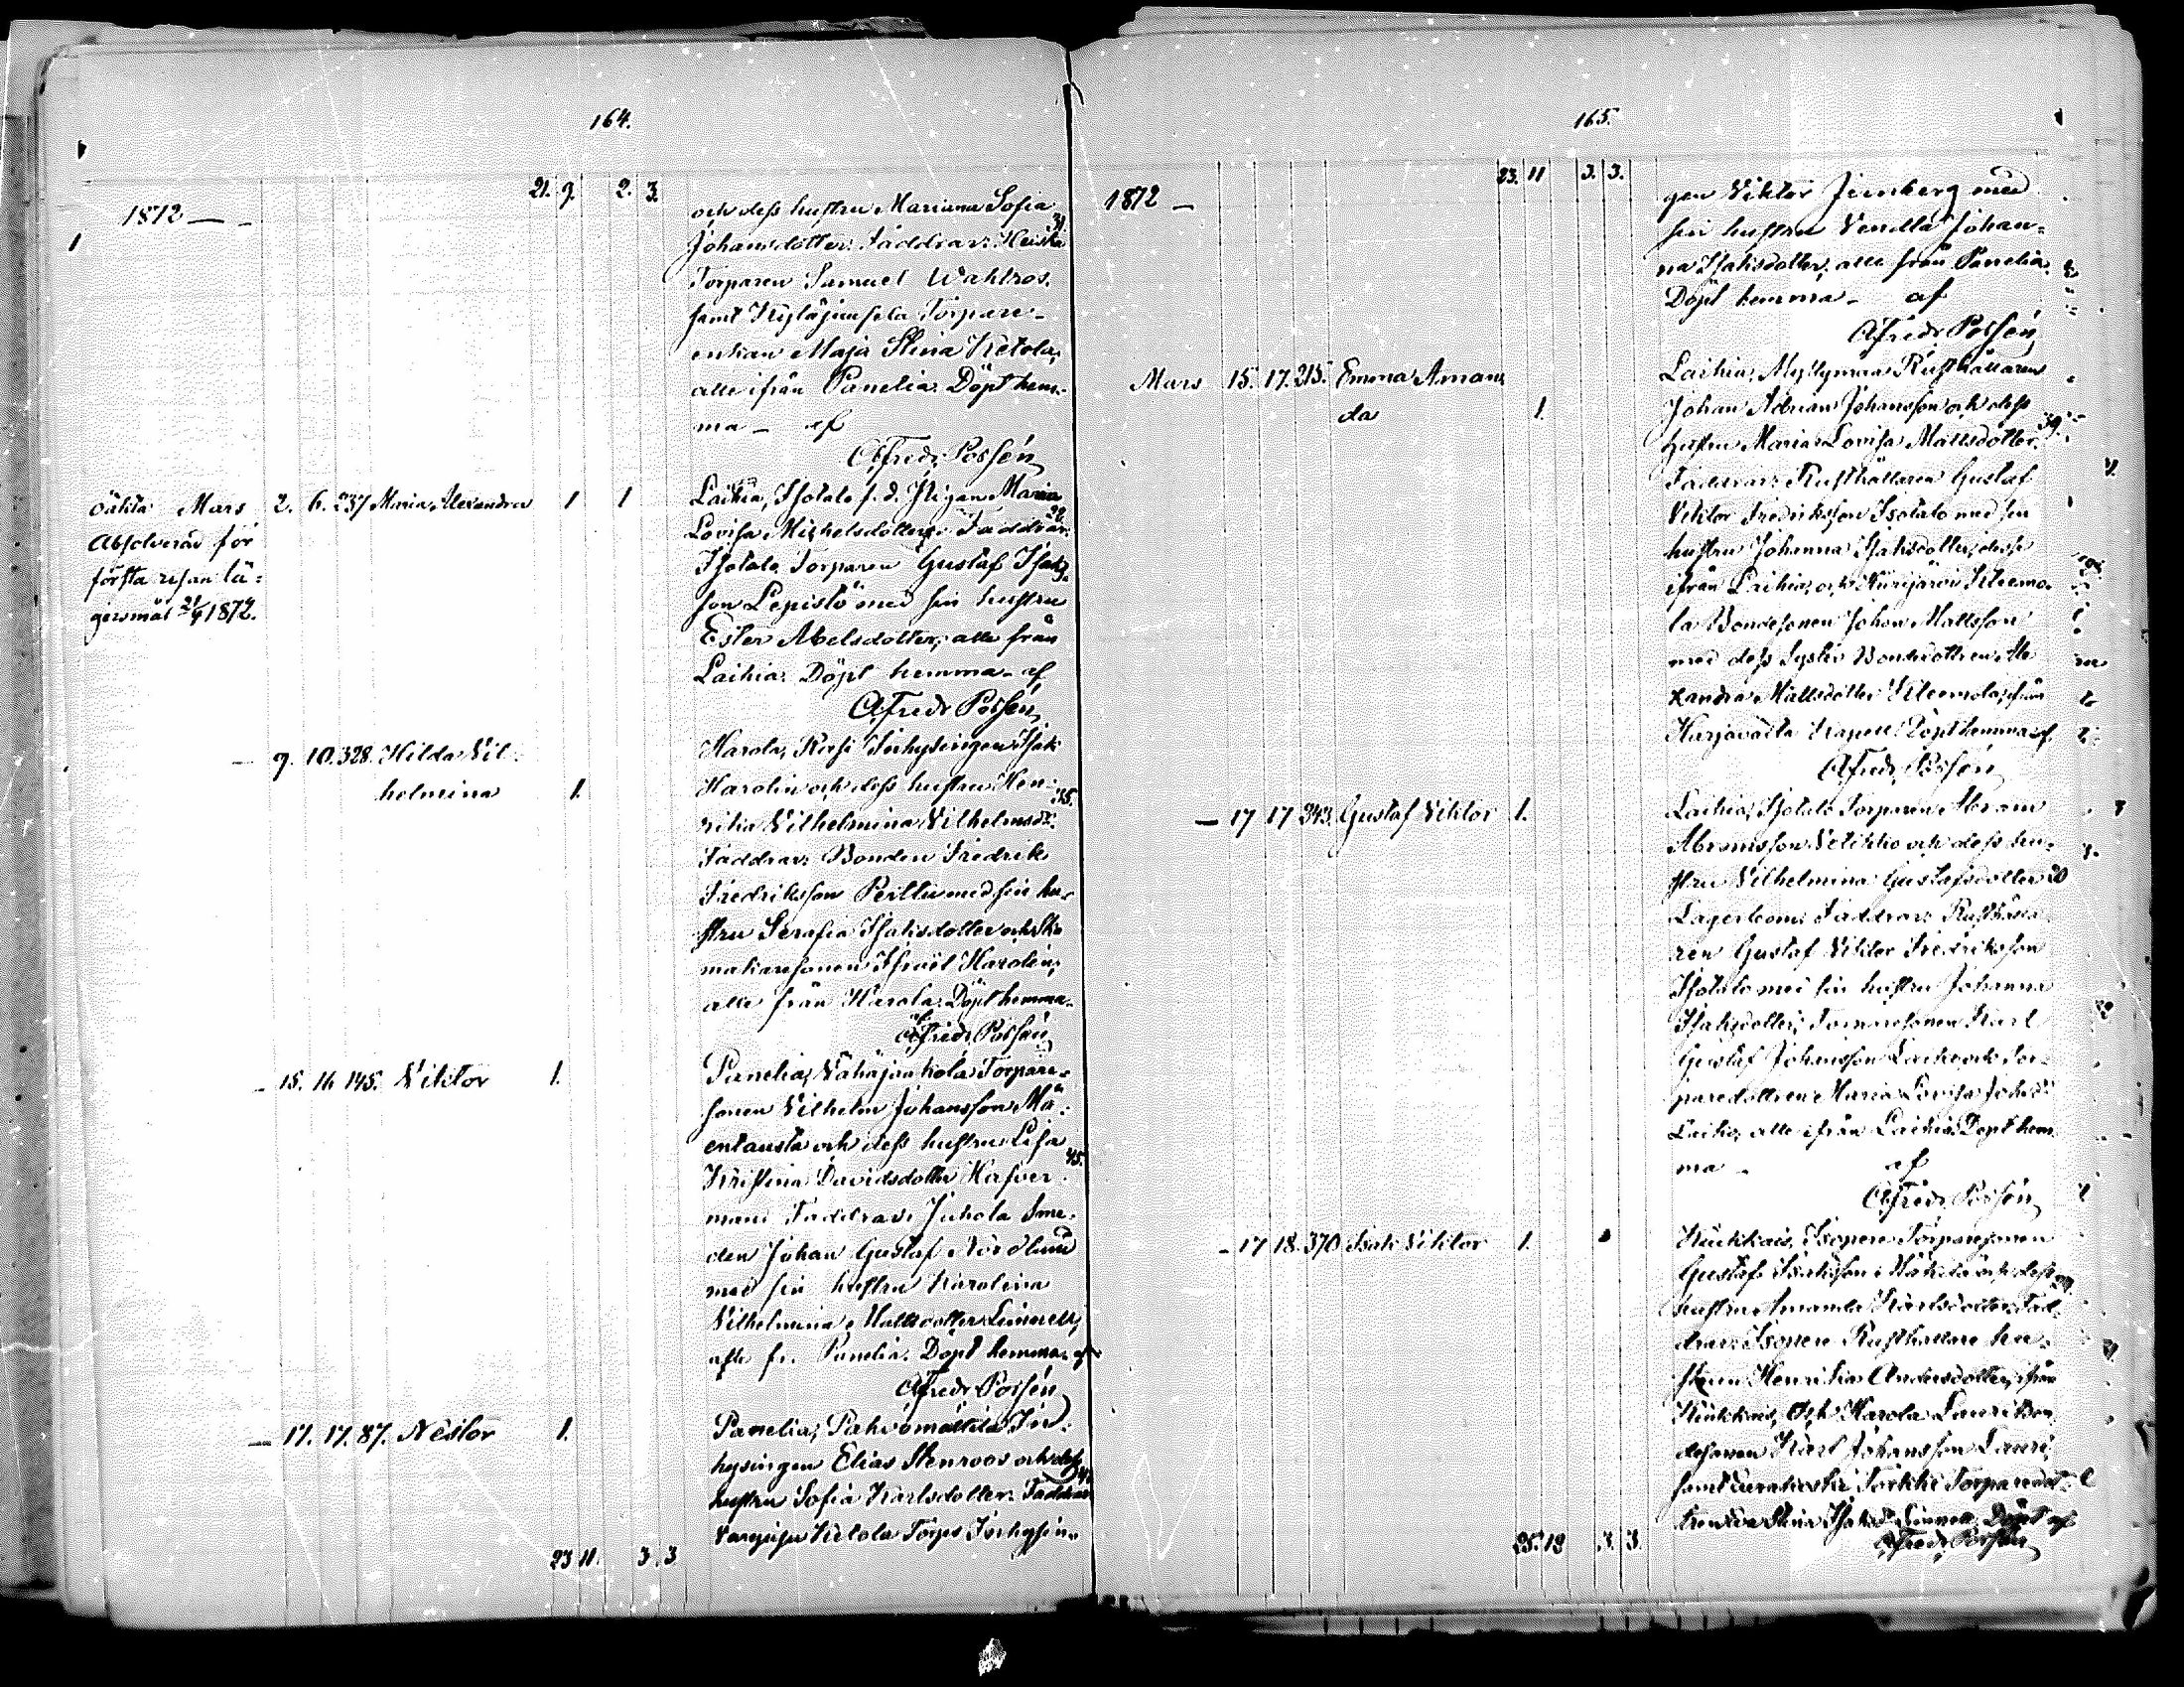 164.
21. 9. 2. 3.
1872 —
och dess hustru Mariana Sofia
Johansdotter. Faddrar: Heiska 31
Torparen Samuel Wahlros.
samt Kyläjunsela Torpare-
enkan Maja Stina Ketola,
alle ifrån Panelia. Döpt hem-
ma — af
Alfredr Possén
oäkta Mars 2. 6. 237 Maria Alexandra 1 1
Absolverad för
första resan lä-
gersmål 21/4 1872.
Laihia, Isotalo f. d. Pigan Maria
Lovisa Michelsdotter. Faddrar: 22
Isotalo Torparen Gustaf Isaks-
son Lepistö med sin hustru
Ester Abelsdotter, alle från
Laihia. Döpt hemma af
Alfredr Possén
— 9. 10. 328. Hilda Vil-
helmina 1.
Harola, Rasi Inhysingen Isak
Harolin och dess hustru Hen- 35.
rika Vilhelmina Vilhelmsdr.
Faddrar: Bonden Fredrik
Fredriksson Perttu med sin hu-
stru Serafia Isaksdotter och Sko-
makaresonen Israël Harolin,
alle från Harola. Döpt hemma
af Alfredr Possén
— 15. 16 145. Viktor 1.
Panelia, Vähäjaakola Torpare-
sonen Vilhelm Johansson Mä-
entausta och dess hustru Lisa
Kristina Davidsdotter Hafver- 45.
man. Faddrar: Juhola Sme-
den Johan Gustaf Nordlund
med sin hustru Karolina
Vilhelmina Mattsdotter Linnell,
alle fr. Panelia. Döpt hemma af
Alfredr Possén
— 17. 17. 87. Nestor 1.
Panelia, Pahvomattila In-
hysingen Elias Stenroos och dess
hustru Sofia Karlsdotter. Faddrar
Ketola Torps Inhysin-
23 11. 3. 3
165.
23. 11 3. 3.
1872 —
gen Viktor Jernberg med
sin hustru Vendla Johan-
na Isaksdotter, alle från Panelia.
Döpt hemma — af
Alfredr Possén
Mars 15. 17. 215. Emma Aman-
da 1.
Laihia, Myllymaa Rusthållaren
Johan Adrian Johansson och dess
hustru Maria Lovisa Mattsdotter. 39.
Faddrar: Rusthållaren Gustaf
Viktor Fredriksson Isotalo med sin
hustru Johanna Isaksdotter, desse
ifrån Laihia, och Kiurijärvi Kleemo-
la Bondesonen Johan Mattsson
med dess Syster Bondedottren Ale-
xandra Mattsdotter Kleemola, från
Harjavalta Kapell. Döpt hemma af
Alfredr Possén
— 17 17 343. Gustaf Viktor 1.
Laihia, Isotalo Torparen Abram
Abramsson Vetikko och dess hu-
stru Vilhelmina Gustafsdotter 20
Lagerbom. Faddrar: Rusthålla-
ren Gustaf Viktor Fredriksson
Isotalo med sin hustru Johanna
Isaksdotter; Torparesonen Karl
Gustaf Johansson Laiho och Tor-
paredottren Maria Lovisa Johsdr
Laiho, alle ifrån Laihia. Döpt hem-
ma — af
Alfredr Possén
— 17 18. 370 Isak Viktor 1.
Kiukkais, Isopere Torparesonen
Gustaf Isaksson Mäkelä och dess
hustru Amanda Karlsdotter. Fad-
drar: Isopere Rusthållare hu-
strun Henrika Andersdotter, ifrån
Kiukkais, och Harola Lauri Bon-
desonen Karl Johansson Lauri
samt Torkki Torparedot-
tren Stina Isaksdr Linnea. Döpt af
Alfredr Possén
25. 12 3. 3.